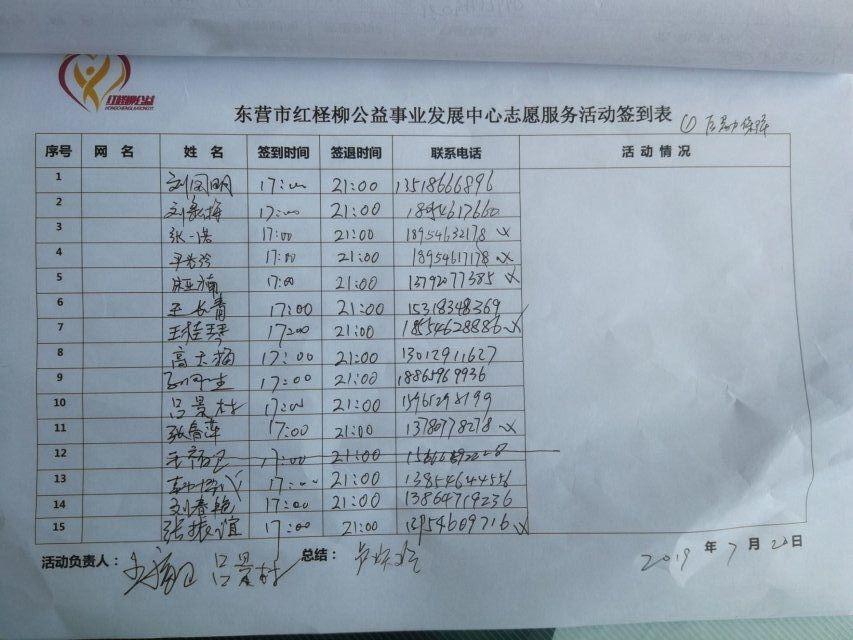 红柽柳公益
HONGCHENGLIUGONGYI
东营市红柽柳公益事业发展中心志愿服务活动签到表 ①
序号 网 名 姓 名 签到时间 签退时间 联系电话 活 动 情 况
1 刘凤明 17:00 21:00 13518666896
2 刘家梅 17:00 21:00 18954617660
3 张一浩 17:00 21:00 18954632178
4 17:00 21:00 18954617178
5 17:00 21:00 13792077385
6 王长青 17:00 21:00 15318348369
7 王桂琴 17:00 21:00 18554628886
8 高士梅 17:00 21:00 13012911627
9 17:00 21:00 18865969936
10 吕景材 17:00 21:00 15965298199
11 张春莲 17:00 21:00 13780778278
12 17:00 21:00
13 17:00 21:00 13854644556
14 刘春艳 17:00 21:00 13864719236
15 张振谊 17:00 21:00 13954609716
活动负责人: 吕景材 总结: 2019 年 7 月 20 日